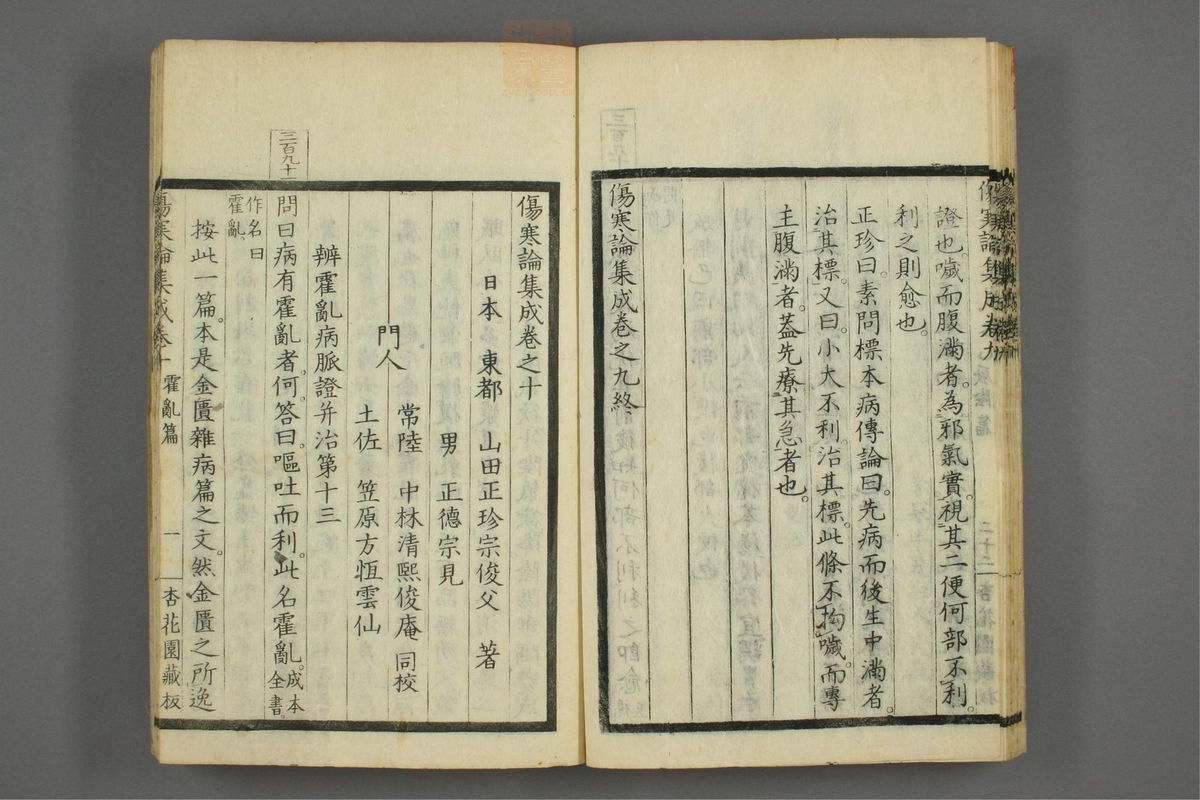 傷寒論集成卷九
證也噦而腹滿者。為邪氣實。視其二便何部不利。
利之則愈也。
正珍曰。素問標本病傳論曰。先病而後生中滿者。
治其標。又曰。小大不利。治其標。此條不拘噦。而專
主腹滿者。蓋先療其急者也。
傷寒論集成卷之九終
傷寒論集成卷之十
日本 東都 山田正珍宗俊父 著
男 正德宗見
門人 常陸 中林清熙俊庵 同校
土佐 笠原方恆雲仙
辨霍亂病脈證并治第十三
三百九十一
問曰病有霍亂者。何。答曰。嘔吐而利。此名霍亂。成本
全書
作名曰
霍亂
按此一篇。本是金匱雜病篇之文。然金匱之所逸
傷寒論集成卷十 霍亂篇 一 杏花園藏板